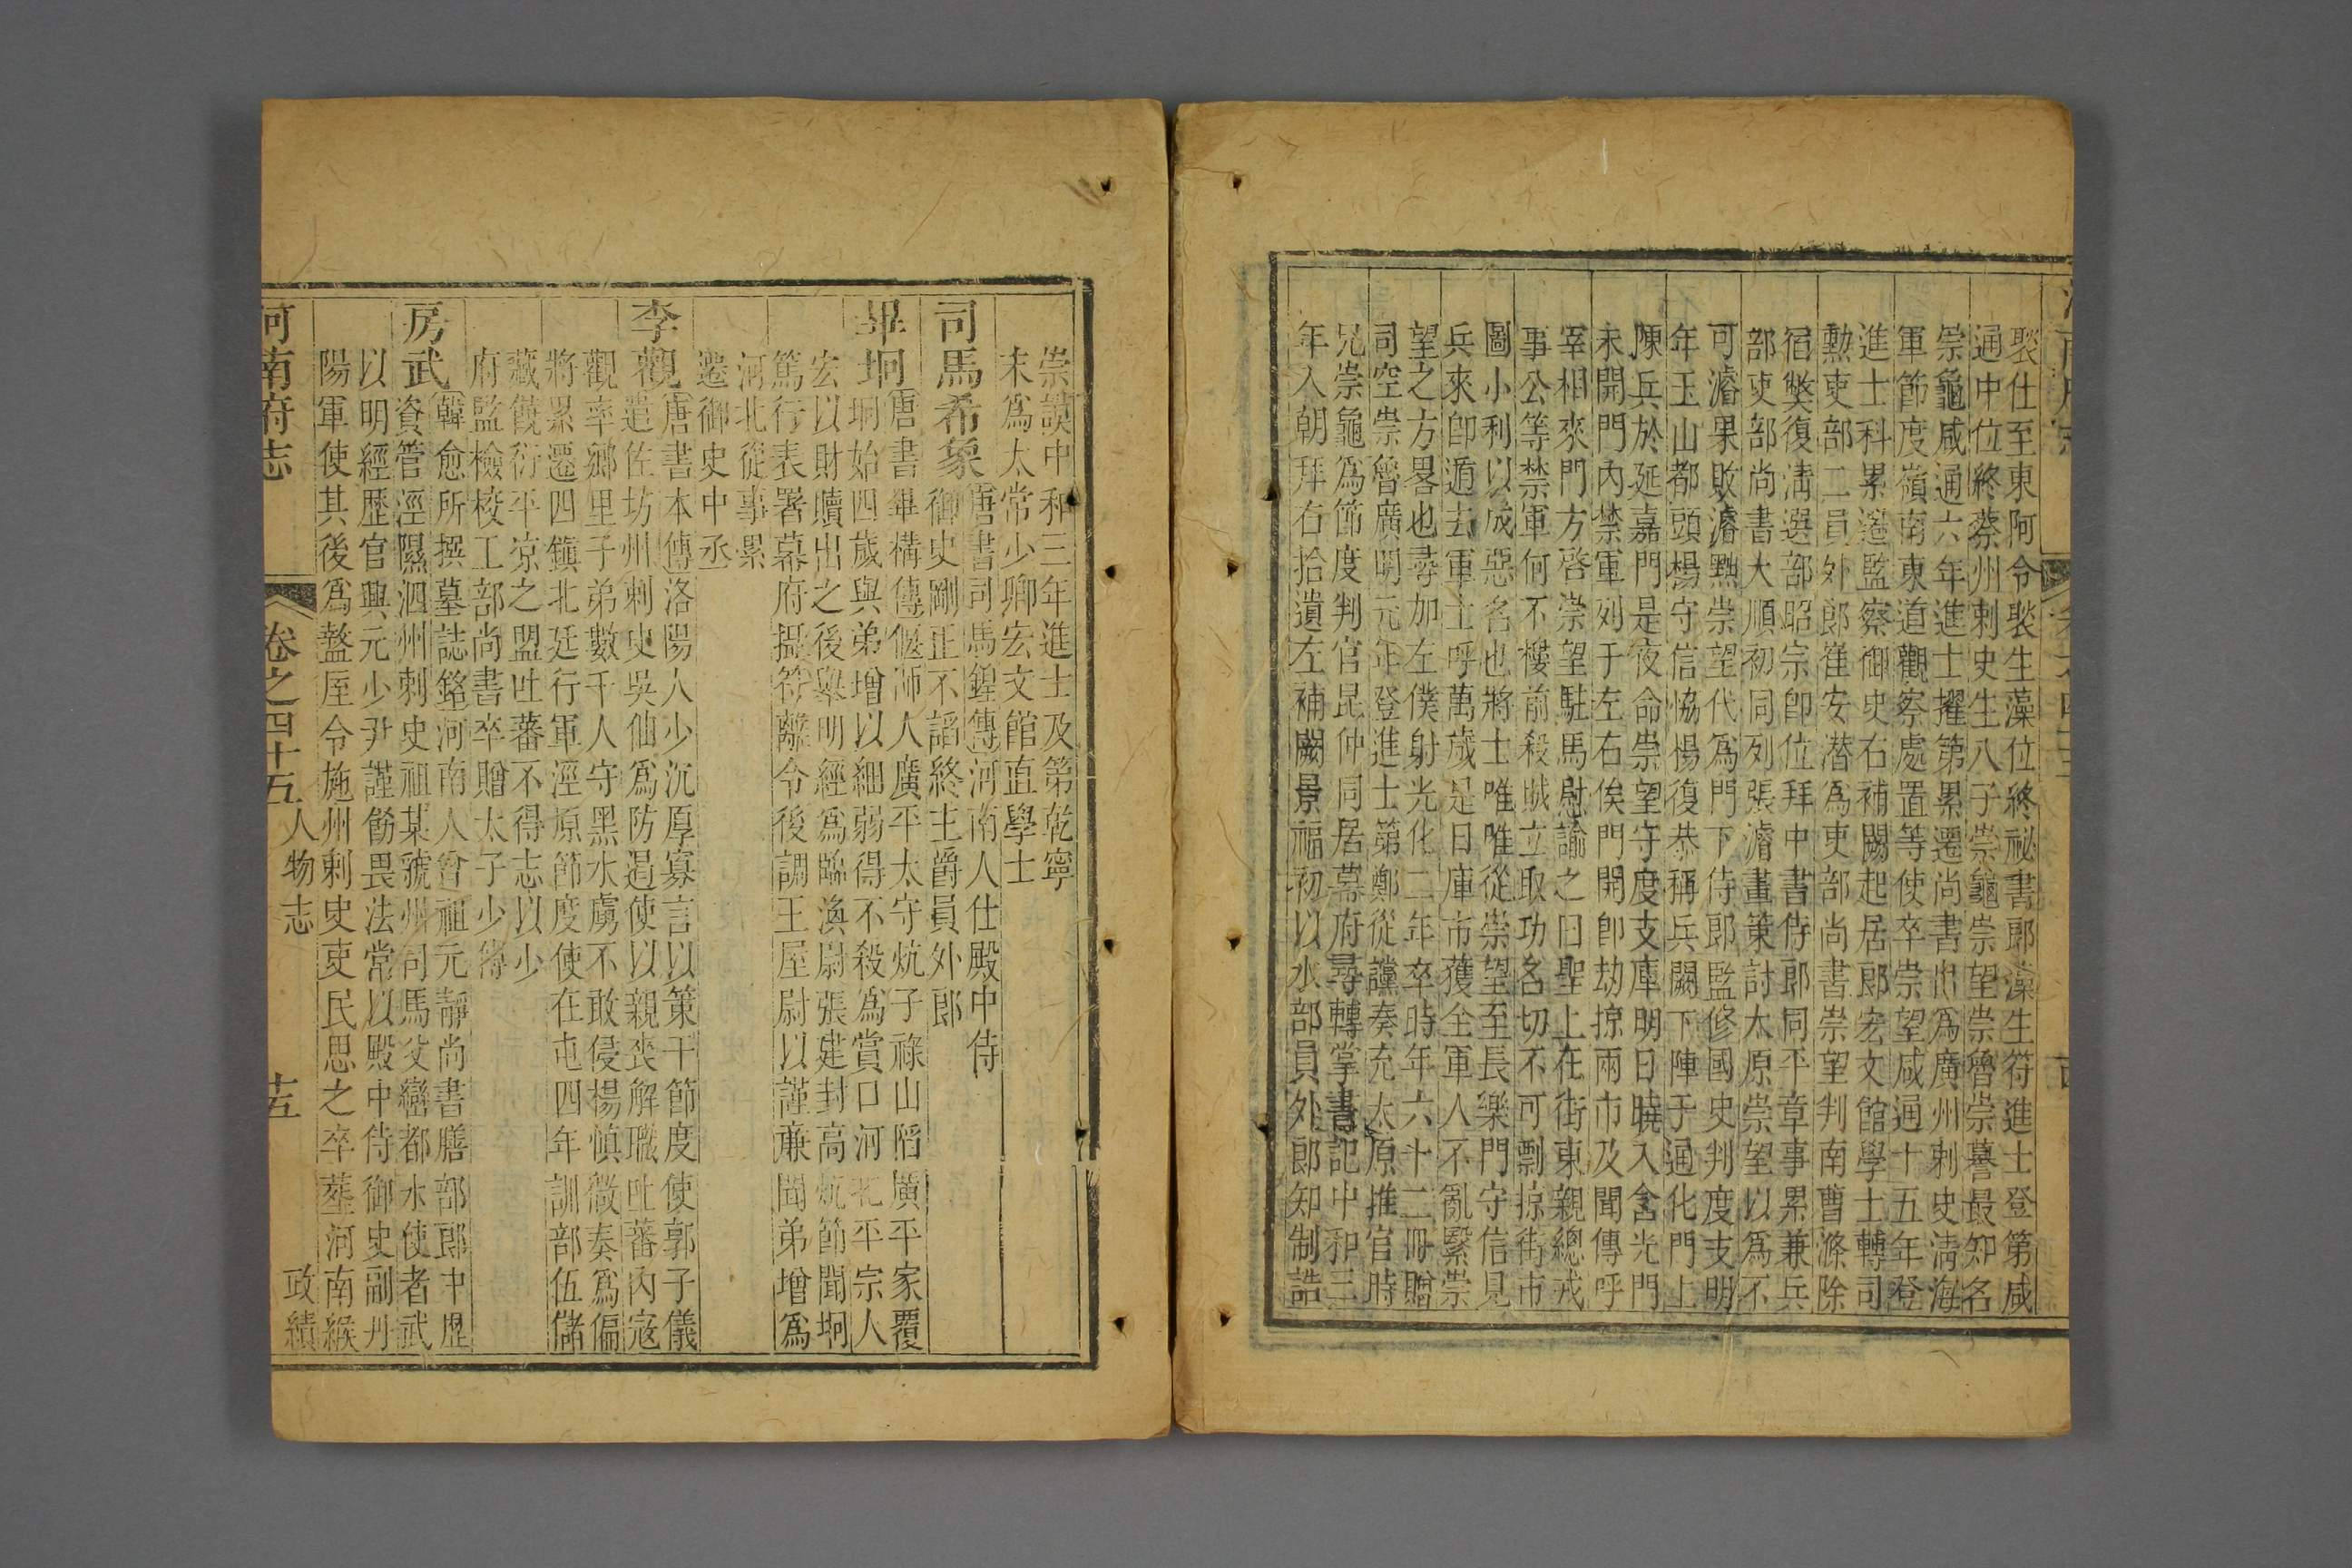 褧仕至東阿令褧生藻位終祕書郎藻生符進士登第咸
通中位終蔡州刺史生八子崇龜崇望崇魯崇謩最知名
崇龜咸通六年進士擢第累遷尚書出為廣州刺史淸海
軍節度嶺南東道觀察處置等使卒崇望咸通十五年登
進士科累遷監察御史右補闕起居郎宏文館學士轉司
勲吏部二員外郎崔安潜為吏部尚書崇望判南曹滌除
宿獘復淸選部昭宗卽位拜中書侍郎同平章事累兼兵
部吏部尚書大順初同列張濬畫策討太原崇望以為不
可濬果敗濬黜崇望代為門下侍郎監修國史判度支明
年玉山都頭楊守信恊楊復恭稱兵闕下陣于通化門上
陳兵於延嘉門是夜命崇望守度支庫明日曉入含光門
未開門內禁軍列于左右俟門開卽劫掠兩市及聞傳呼
宰相來門方啓崇望駐馬慰諭之曰聖上在街東親總戎
事公等禁軍何不樓前殺賊立取功名切不可剽掠街市
圖小利以成惡名也將士唯唯從崇望至長樂門守信見
兵來卽遁去軍士呼萬歲是日庫市獲全軍人不亂繄崇
望之方畧也尋加左僕射光化二年卒時年六十二冊贈
司空崇魯廣明元年登進士第鄭從讜奏充太原推官時
兄崇龜為節度判官昆仲同居幕府尋轉掌書記中和三
年入朝拜右拾遺左補闕景福初以水部員外郎知制誥
崇謨中和三年進士及第乾寧
末為太常少卿宏文館直學士
司馬希象唐書司馬鍠傳河南人仕殿中侍
御史剛正不謟終主爵員外郎
畢坰唐書畢構傳偃師人廣平太守炕子祿山陷廣平家覆
坰始四歲與弟增以細弱得不殺為賞口河北平宗人
宏以財贖出之後舉明經為臨渙尉張建封高炕節聞坰
篤行表署幕府攝符離令後調王屋尉以謹亷聞弟增為
河北從事累
遷御史中丞
李觀唐書本傳洛陽人少沉厚寡言以策干節度使郭子儀
遣佐坊州刺史吳伷為防遏使以親喪解職吐蕃內寇
觀率鄉里子弟數千人守黑水虜不敢侵楊慎微奏為偏
將累遷四鎮北廷行軍涇原節度使在屯四年訓部伍儲
藏饒衍平凉之盟吐蕃不得志以少
府監檢校工部尚書卒贈太子少傅
房武韓愈所撰墓誌銘河南人曾祖元靜尚書膳部郎中歷
資管涇隰泗州刺史祖某虢州司馬父巒都水使者武
以明經歷官興元少尹謹飭畏法常以殿中侍御史副丹
陽軍使其後為盩厔令施州刺史吏民思之卒塟河南緱
河南府志 卷之四十五 人物志 政績 十五